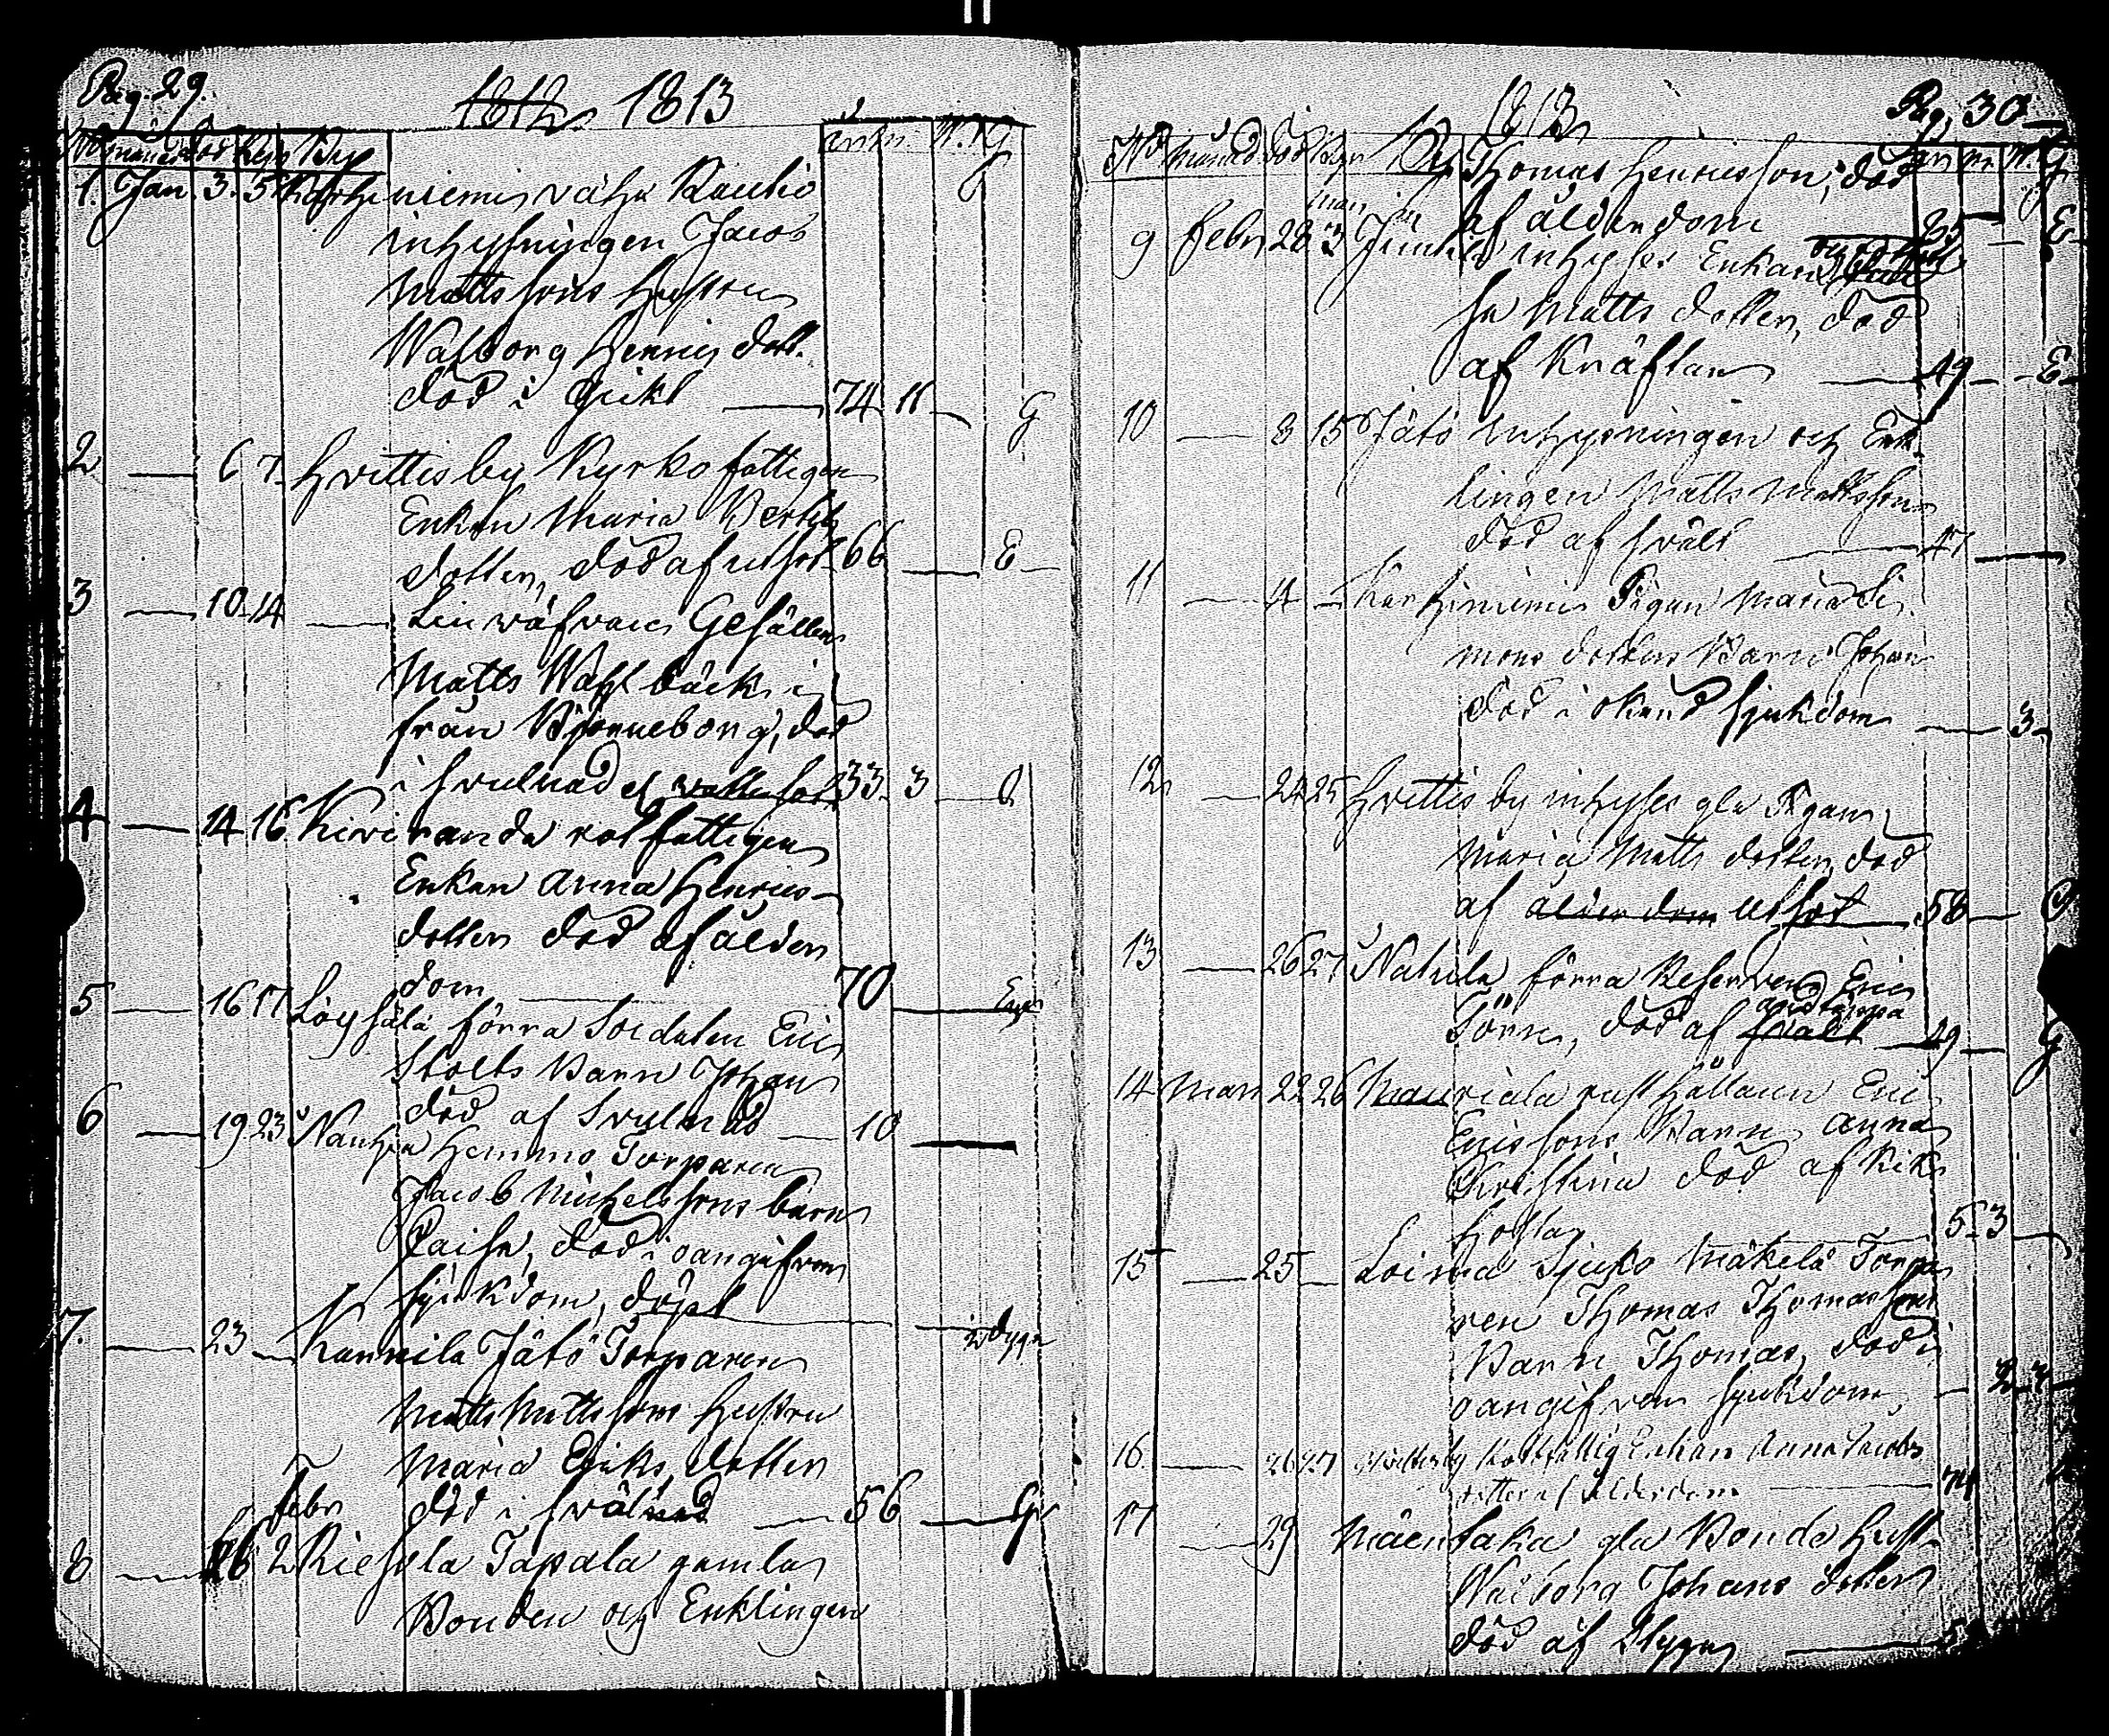 Pag. 29.
1812 1813
No månad död begr By år m W. G
1. Jan. 3. 5. Karhiniemi väha Rautio
inhysningen Jacob
Matts sons hustru
Walborg Henrics dott.
död i Gickt — 74 11 — G
2 — 6 7. Hvittisby Kyrko fattigen
Enkan Maria Bertils
dotter, död af utsot 66 — E
3 — 10 14 — Lin väfvare Gesällen
Matts Wahlbäck
från Björneborg, död
i svulnad el wattusot 33 3 — O
4 — 14 16 Kiviranda rotfattigen
Enkan Anna Henrics
dotter död af ålder
dom — 70 — Enk
5 — 16 17 Löysälä förra Soldaten Eric
Stolts Barn Johan
död af Svulnad — 10 —
6 — 19 23 Nanhia Hemmo Torparen
Jacob Michelssons barn
Caisa, död i oangifven
sjukdom, döpt — 2 dygn
7. — 23 — Kannila Jätö Torparen
Matts Mattssons hustru
Maria Eriks dotter
febr död i svålnad — 56 — G
8 — 26 2 Riesola Tapala gamla
Bonden och Enklingen
1813
Pag. 30
No månad död begr By år m W. G
Thomas Henricsson, död
af ålderdom 85 — E
mars
9 febr 28 3 inhyses Enkan
sa Matts dotter, död
af Kräftan — 49 — E
10 — 8 15 Jätö inhysningen och Enk
lingen Matts Mattsson
död af svålt — 47 —
11 — 4 — Karhiniemi Pigan Maria Si
mons dotters Barn Johan
död i okänd sjukdom — 3
12 — 24 25 Hvittis by inhyses gla Pigan
Maria Matts dotter, död
af ålderdom utsot 58 — O
13 — 26 27 Nahula förra Reserven Eric
Törn, död af svält
andtäppa 29 — G
14 Mars 22 26 Mauriala rusthållaren Eric
Ericssons Barn Anna
Kristina död af Kik
hosta 5 3 —
15 — 25 — Loima Sjuko Mäkelä Torpa
ren Thomas Thomassons
Barn Thomas, död i
oangifven sjukdom — 2
16. — 26 27 Hvittisby Rotefattig Enkan Anna Jacobs
dotter af ålderdom — 74
17 — 29 Mäensaka gla Bonde hust.
Walborg Johans dotter
död af Stygn —